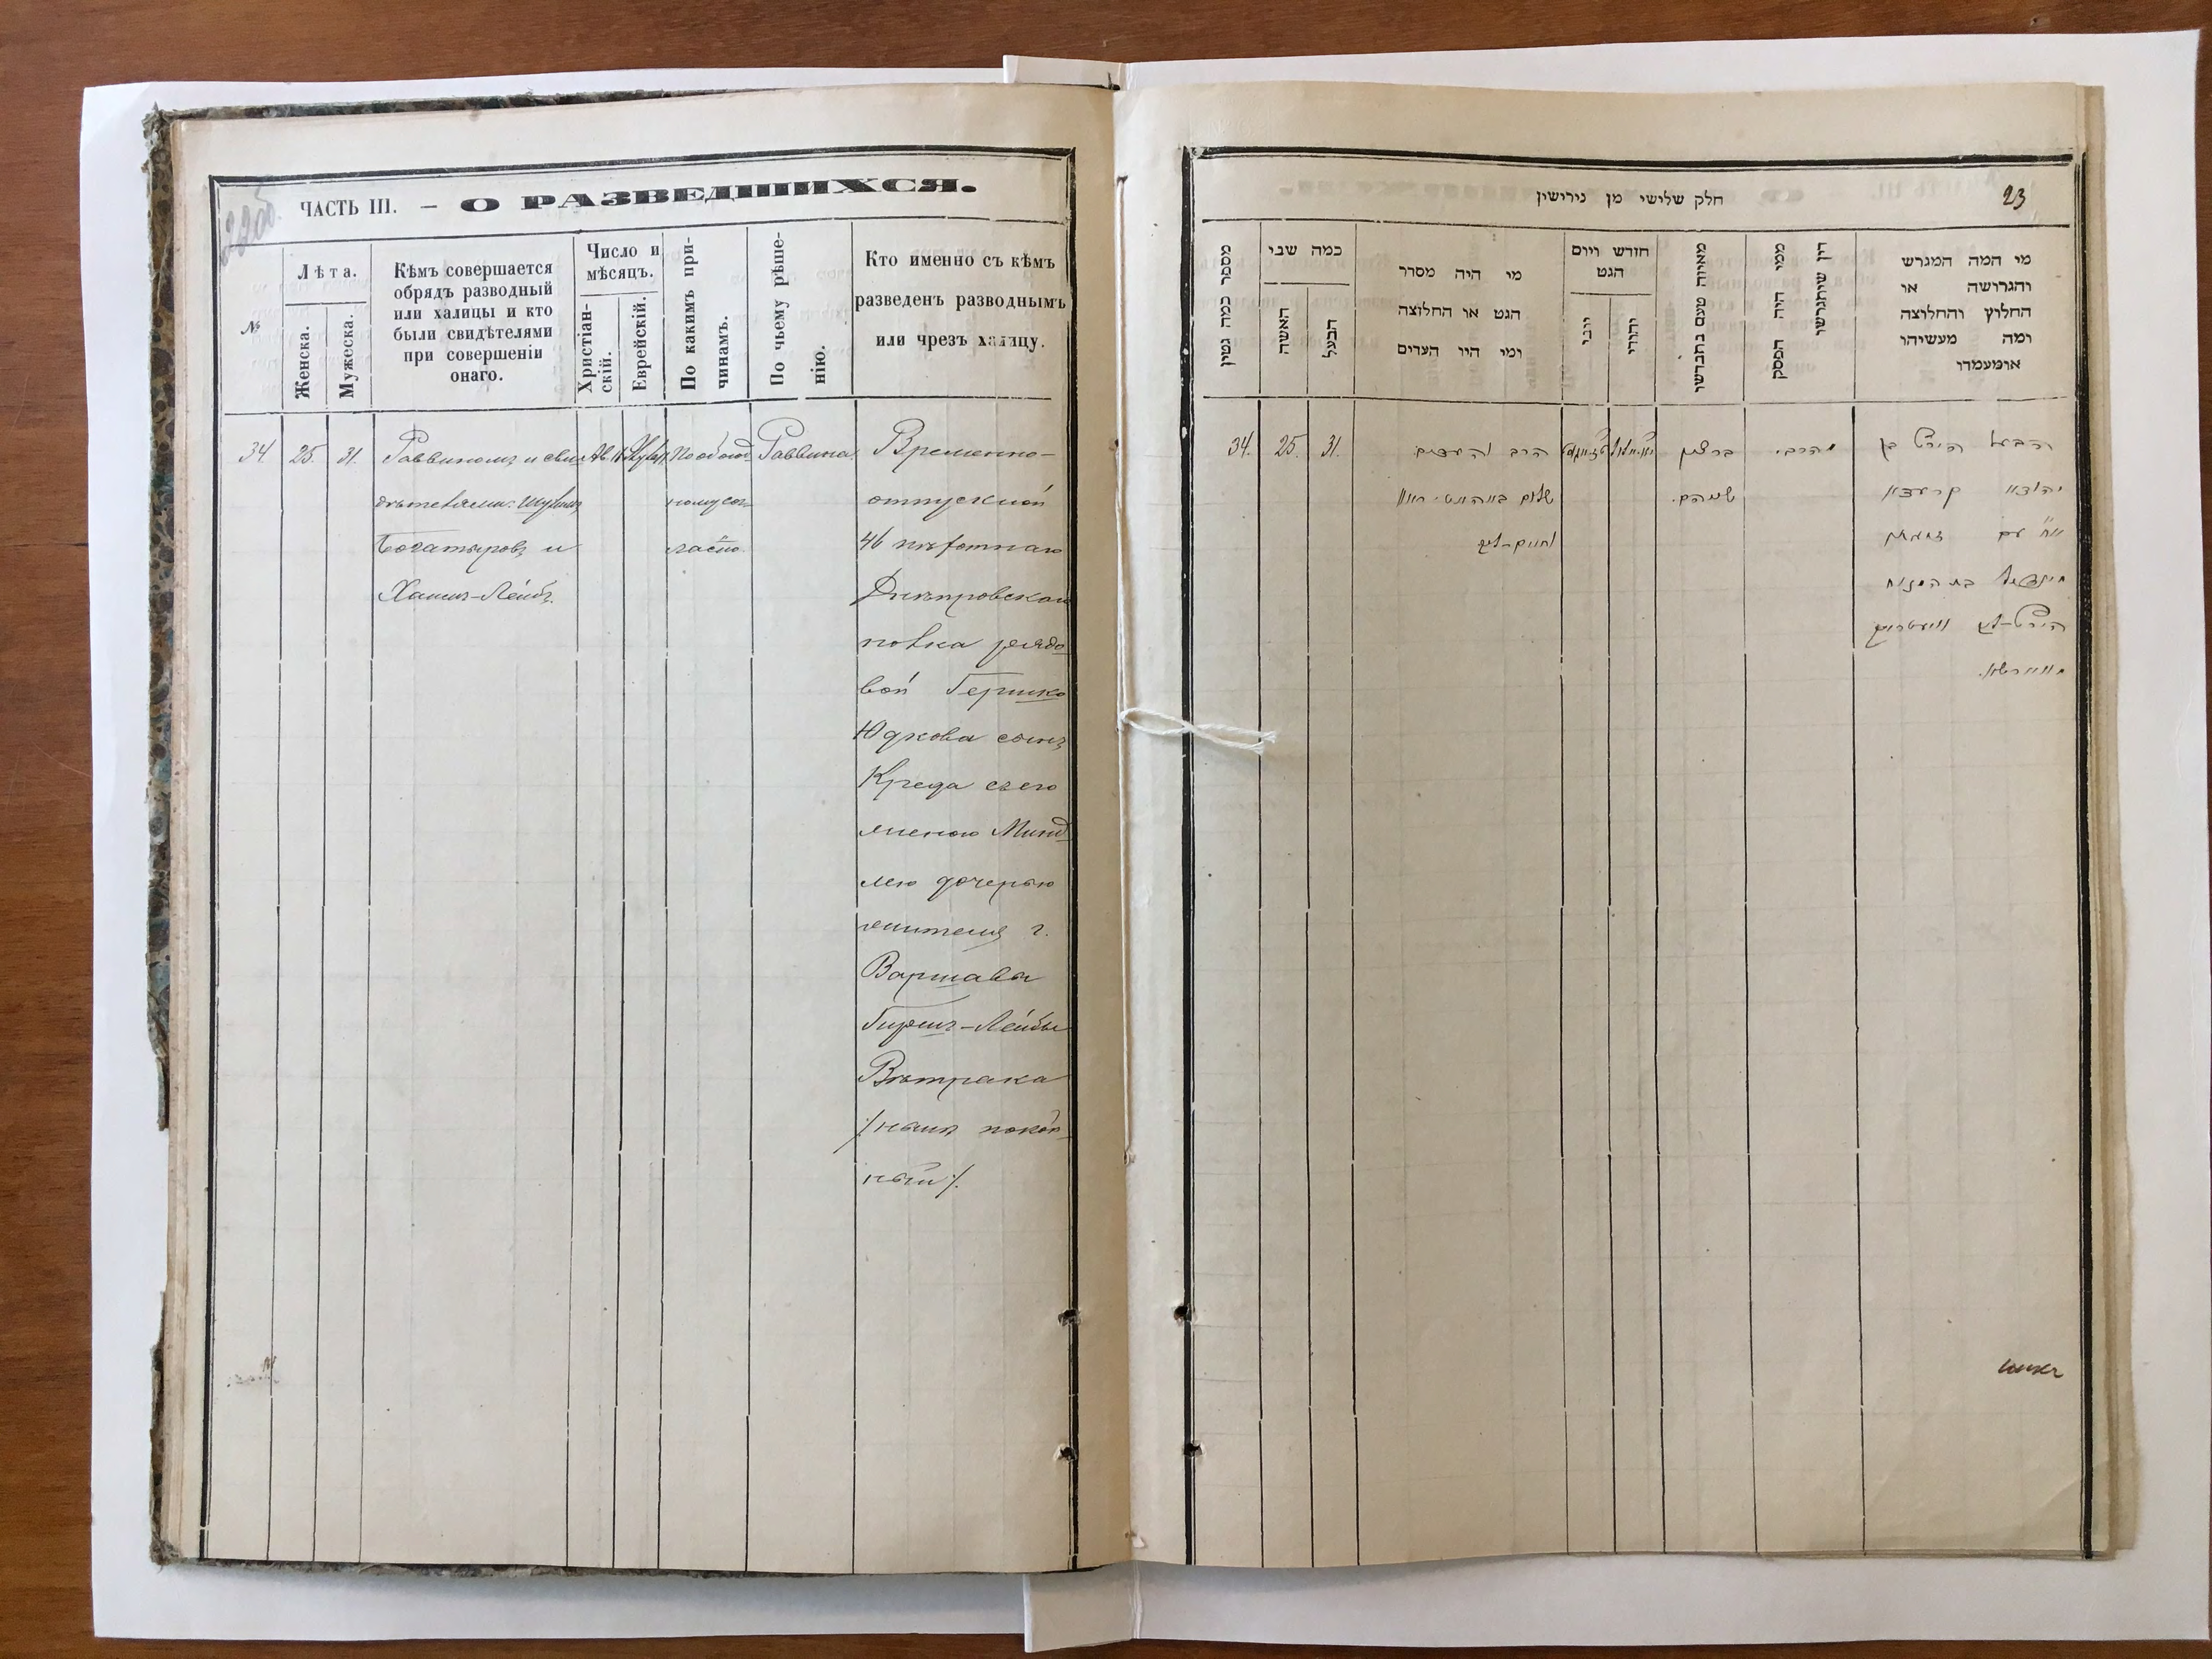 ЧАСТЬ III. — О РАЗВЕДШИХСЯ.
№
Лѣта.
Женска.
Мужеска.
Кѣмъ совершается
обрядъ разводный
или халицы и кто
были свидѣтелями
при совершеніи
онаго.
Число и
мѣсяцъ.
Христіан-
скій.
Еврейскій.
По какимъ при-
чинамъ.
По чьему рѣше-
нію.
Кто именно съ кѣмъ
разведенъ разводнымъ
или чрезъ халицу.
34.
25.
31.
Раввиномъ и сви-
дѣтелями:
Богатыровъ и
Хаимъ-Лейбъ.
По обоюд-
ному сог-
ласію.
Раввина.
Временно-
отпускной
46 пѣхотнаго
Днѣпровскаго
полка рядо
вой Гершко
Юдкова сынъ
Креда съ его
женою Минд
лею дочерью
жителя г.
Варшавы
Гиршъ-Лейбы
Вѣтрака
/: нынѣ покой-
ный :/.
חלק שלישי מן גירושין
23
מספר כמה גטין
כמה שני
האשה
הבעל
מי היה מסדר
הגט או החלוצה
ומי היו העדים
חודש ויום
הגט
יוני
יהודי
מאיזה טעם נתגרשו
ממי היה הפסק
דין שיתגרשו
מי המה המגרש
והגרושה או
החלוץ והחלוצה
ומה מעשיהו
אומעמדו
34.
25.
31.
הרב והעדים
שלום
וחיים-ליב
ברצון
שניהם.
מהרב.
הבעל הירש בן